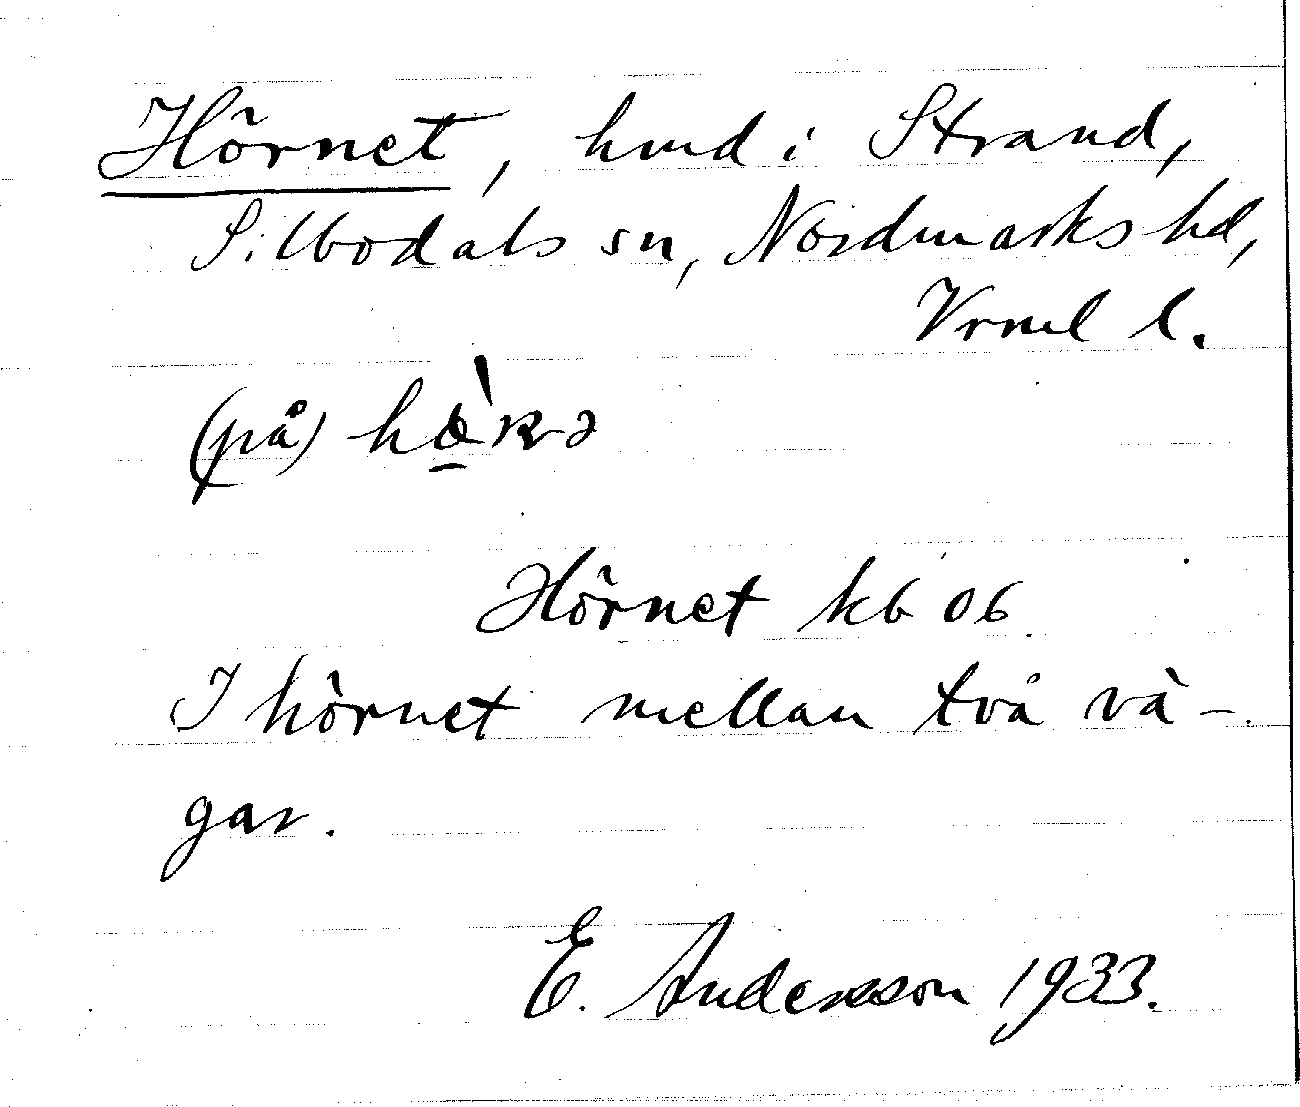 Hörnet, hmd i Strand,
Silbodals sn, Nordmarks hd,
Vrml l.
(på)
Hörnet kb 06
I hörnet mellan två vä-
gar.
E. Andersson 1933.